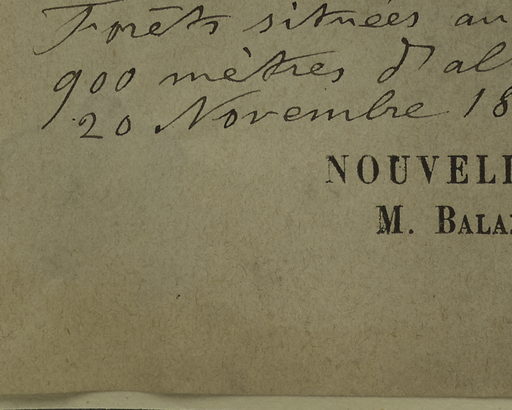 Forêts situées au
900 mètres d'al
20 Novembre 18
NOUVELL
M. BALA